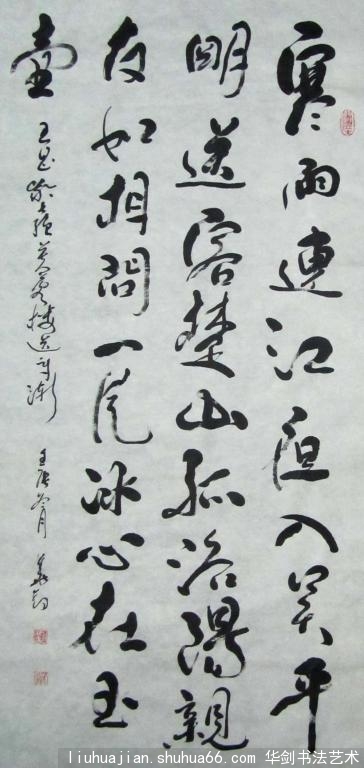 寒雨連江入吴平
明送客楚山孤洛陽親
友如相問一片冰心在玉
壺
王昌齡芙蓉樓送辛漸 壬辰月 華剑
liuhuajian.shuhua66.com 华剑书法艺术